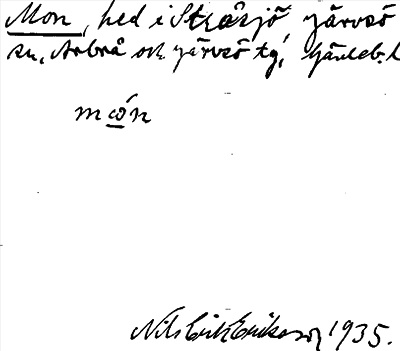 Mon, hed i Stråsjö, Järvsö
sn, Arbrå och Järvsö tg, Gävleb. l
mώn
Nils Erik Eriksson 1935.